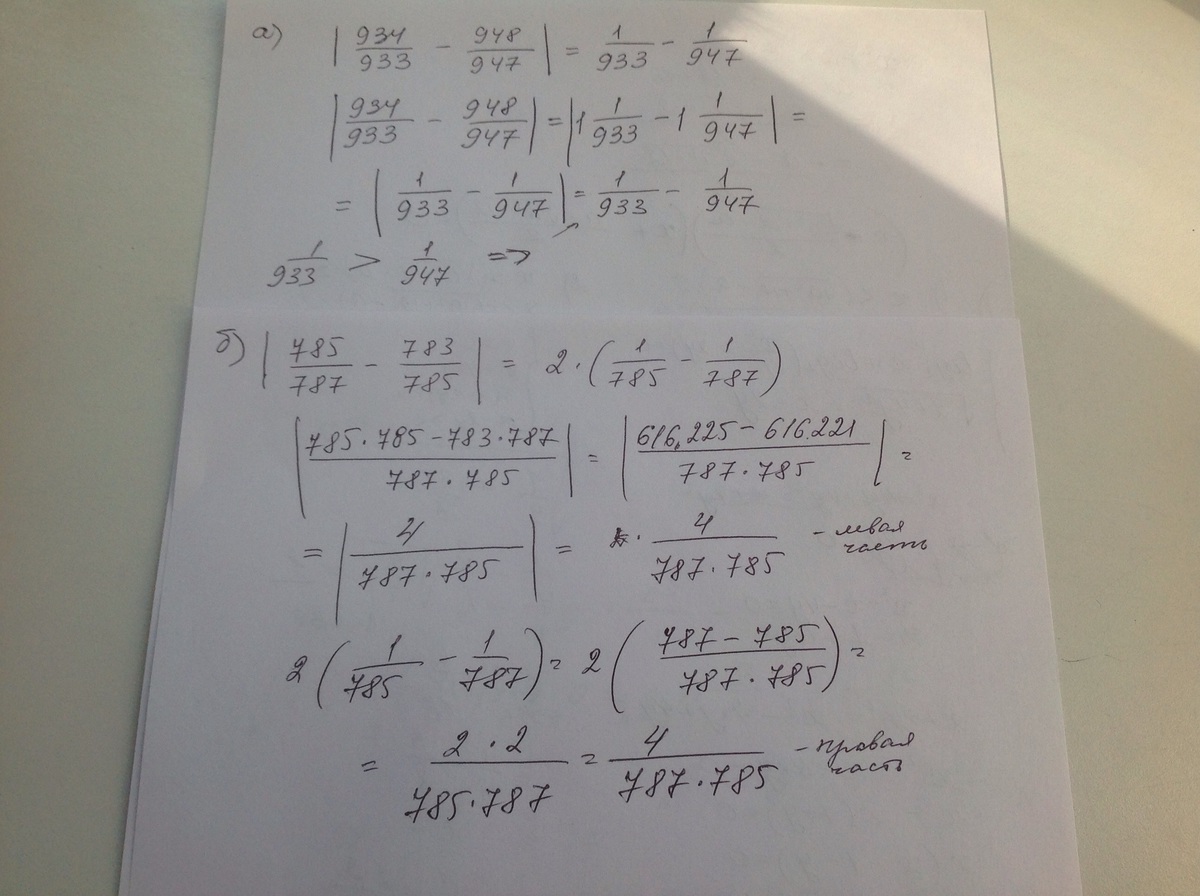 а) | 934/933 − 948/947 | = 1/933 − 1/947
| 934/933 − 948/947 | = | 1 1/933 − 1 1/947 | =
= | 1/933 − 1/947 | = 1/933 − 1/947
1/933 > 1/947 =>
б) | 785/787 − 783/785 | = 2 · ( 1/785 − 1/787 )
| (785·785 − 783·787)/(787·785) | = | (616.225 − 616.221)/(787·785) | =
= | 4/(787·785) | = 4/(787·785) – левая часть
2 ( 1/785 − 1/787 ) = 2 ( (787 − 785)/(787·785) ) =
= (2·2)/(785·787) = 4/(787·785) – правая часть